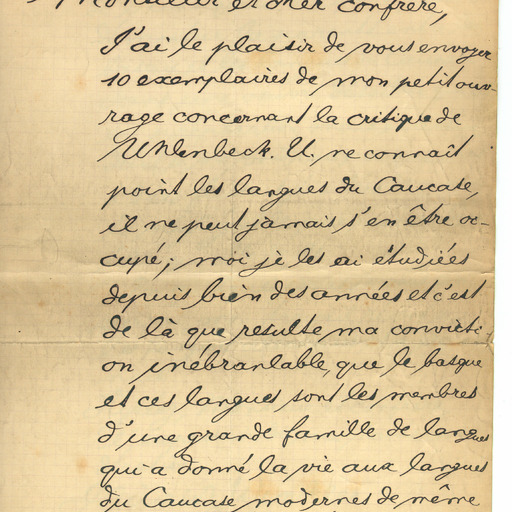 Monsieur et cher confrère,
J'ai le plaisir de vous envoyer
10 exemplaires de mon petit ouv-
rage concernant la critique de
Uhlenbeck. U. ne connaît
point les langues du Caucase,
il ne peut jamais s'en être oc-
cupé; moi je les ai étudiées
depuis bien des années et c'est
de là que resulte ma convicti-
on inébranlable, que le basque
et ces langues sont les membres
d'une grande famille de langues
qui a donné la vie aux langues
du Caucase modernes de même